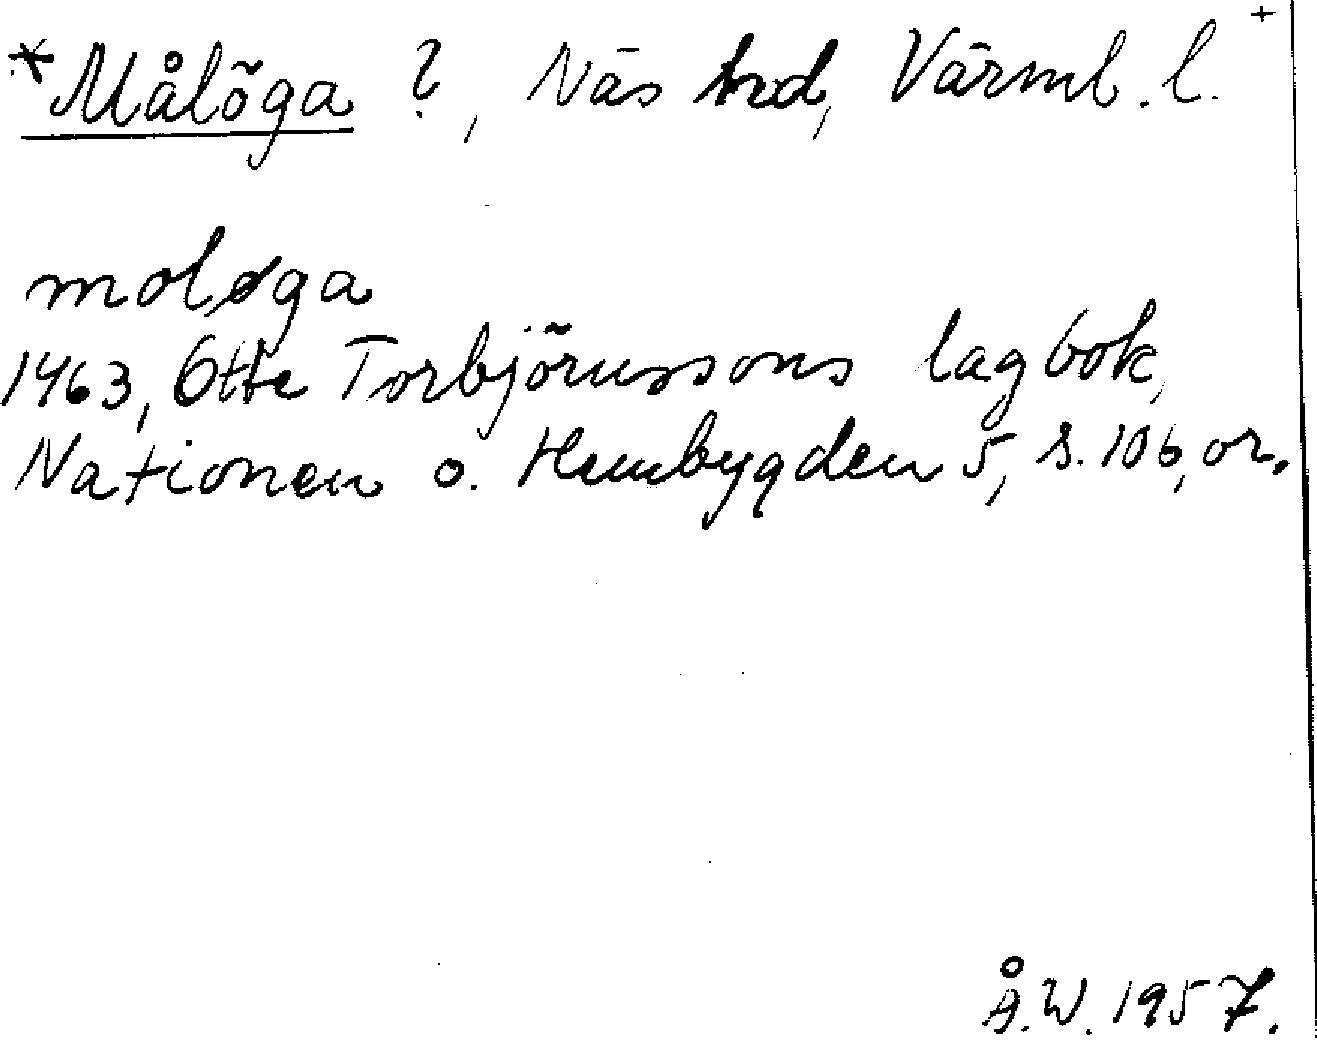 *Målöga ?, Näs hd, Värml. l. +
moløga
1463, Otte Torbjörnssons lagbok,
Nationen o. Hembygden 5, s. 106, or.
Å.W. 1957.